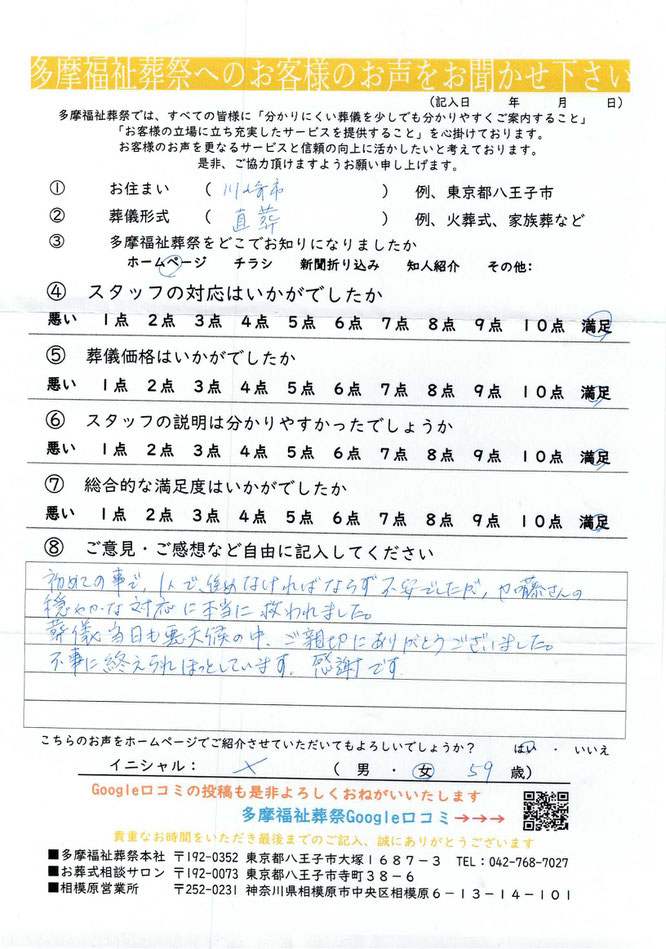 多摩福祉葬祭へのお客様のお声をお聞かせ下さい
(記入日　　年　　月　　日)
多摩福祉葬祭では、すべての皆様に「分かりにくい葬儀を少しでも分かりやすくご案内すること」
「お客様の立場に立ち充実したサービスを提供すること」を心掛けております。
お客様のお声を更なるサービスと信頼の向上に活かしたいと考えております。
是非、ご協力頂けますようお願い申し上げます。
① お住まい （ 川崎市 ） 例、東京都八王子市
② 葬儀形式 （ 直葬 ） 例、火葬式、家族葬など
③ 多摩福祉葬祭をどこでお知りになりましたか
ホームページ　チラシ　新聞折り込み　知人紹介　その他:
④ スタッフの対応はいかがでしたか
悪い　1点　2点　3点　4点　5点　6点　7点　8点　9点　10点　満足
⑤ 葬儀価格はいかがでしたか
悪い　1点　2点　3点　4点　5点　6点　7点　8点　9点　10点　満足
⑥ スタッフの説明は分かりやすかったでしょうか
悪い　1点　2点　3点　4点　5点　6点　7点　8点　9点　10点　満足
⑦ 総合的な満足度はいかがでしたか
悪い　1点　2点　3点　4点　5点　6点　7点　8点　9点　10点　満足
⑧ ご意見・ご感想など自由に記入してください
初めての事で、1人で、進めなければならず不安でしたが、加藤さんの
穏やかな対応に本当に救われました。
葬儀当日も悪天候の中、ご親切にありがとうございました。
事に終えられほっとしています。感謝です
こちらのお声をホームページでご紹介させていただいてもよろしいでしょうか？　はい　・　いいえ
イニシャル：　　（ 男 ・ 女　59　歳）
Google口コミの投稿も是非よろしくおねがいいたします
多摩福祉葬祭Google口コミ→→→
貴重なお時間をいただき最後までのご記入、誠にありがとうございます
■多摩福祉葬祭本社　〒192-0352 東京都八王子市大塚１６８７－３　TEL：042-768-7027
■お葬式相談サロン　〒192-0073 東京都八王子市寺町３８－６
■相模原営業所　〒252-0231 神奈川県相模原市中央区相模原６－１３－１４－１０１